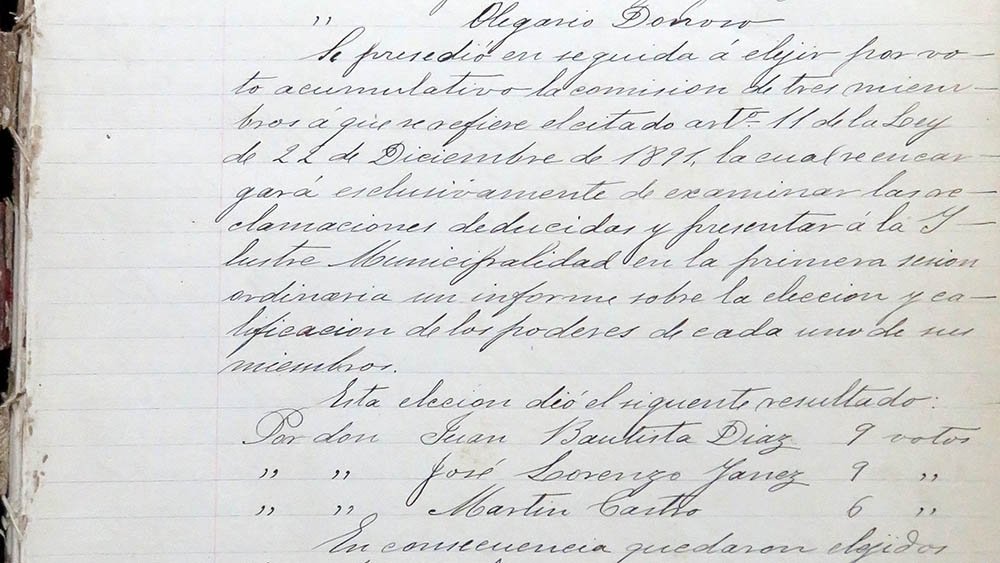 " Olegario Donoso
Se presedió en seguida á elijir por vo-
to acumulativo la comision de tres miem-
bros á que se refiere el citado arto. 11 de la Ley
de 22 de Diciembre de 1891, la cual se encar-
gará esclusivamente de examinar las re-
clamaciones deducidas y presentar á la I-
lustre Municipalidad en la primera sesion
ordinaria un informe sobre la eleccion y ca-
lificacion de los poderes de cada uno de sus
miembros.
Esta eleccion dió el siguente resultado:
Por don Juan Bautista Diaz 9 votos
" " José Lorenzo Yanez 9 "
" " Martin Castro 6 "
En consecuencia quedaron elejidos